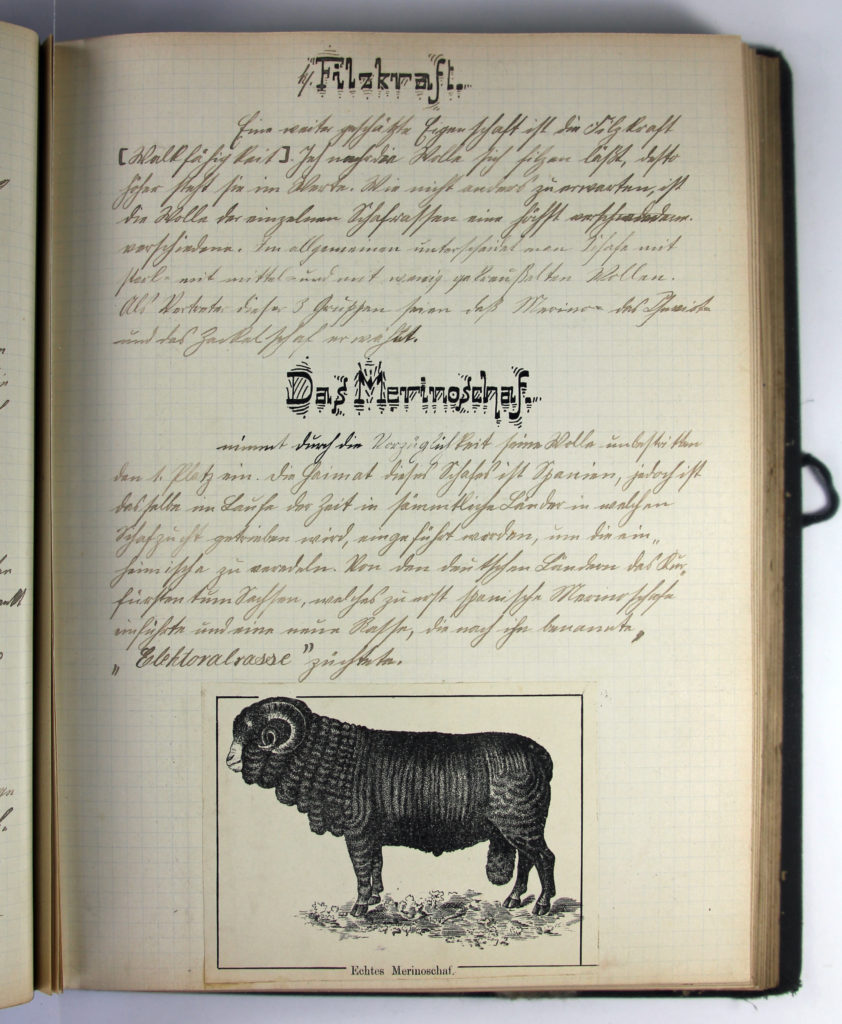 h). Filzkraft.
Eine weiter geschätzte Eigenschaft ist die Filzkraft
[Walkfähigkeit]. Je nach die Wolle sich filzen läßt, desto
höher steht sie im Werte. Wie nicht anders zu erwarten, ist
die Wolle der einzelnen Schafrassen eine höchst
verschiedene. Im allgemeinen unterscheidet man Schafe mit
stark- mit mittel- und mit wenig gekräuselten Wollen.
Als Vertreter dieser 3 Gruppen seien das Merino- das Cheviot-
und das Zackelschaf erwählt.
Das Merinoschaf.
nimmt durch die Vorzüglichkeit seine Wolle unbestritten
den 1. Platz ein. Die Heimat dieses Schafes ist Spanien, jedoch ist
dasselbe im Laufe der Zeit in sämmtliche Länder in welchen
Schafzucht getrieben wird, eingeführt worden, um die ein„
heimische zu veredeln. Von den deutschen Ländern das Kur„
fürstentum Sachsen, welches zu erst spanische Merinoschafe
einführte und eine neue Rasse, die nach ihm benannte„
„Elektoralrasse" züchtete.
Echtes Merinoschaf.